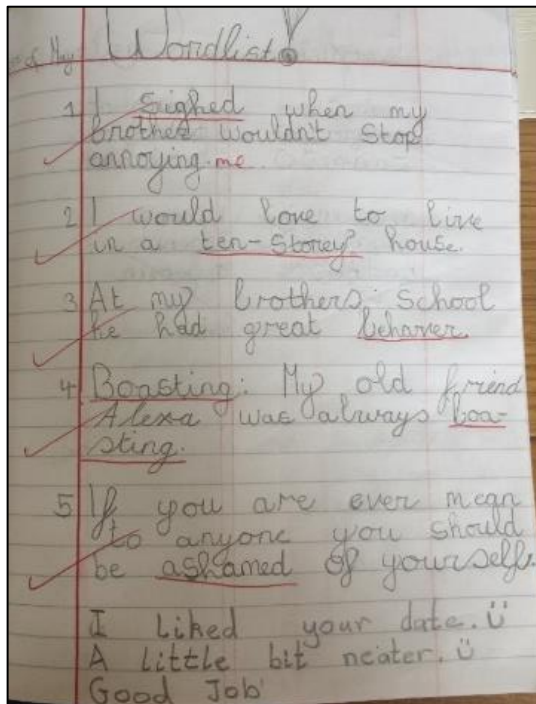 of May Wordlist!
1 I Sighed when my
brother wouldn't stop
annoying me.
2 I would love to live
in a ten-Storey house.
3 At my brothers school
he had great behaver.
4 Boasting: My old friend
Alexa was always boa-
sting.
5 If you are ever mean
to anyone you should
be ashamed of yourself.
I Liked your date. Ü
A little bit neater. Ü
Good Job